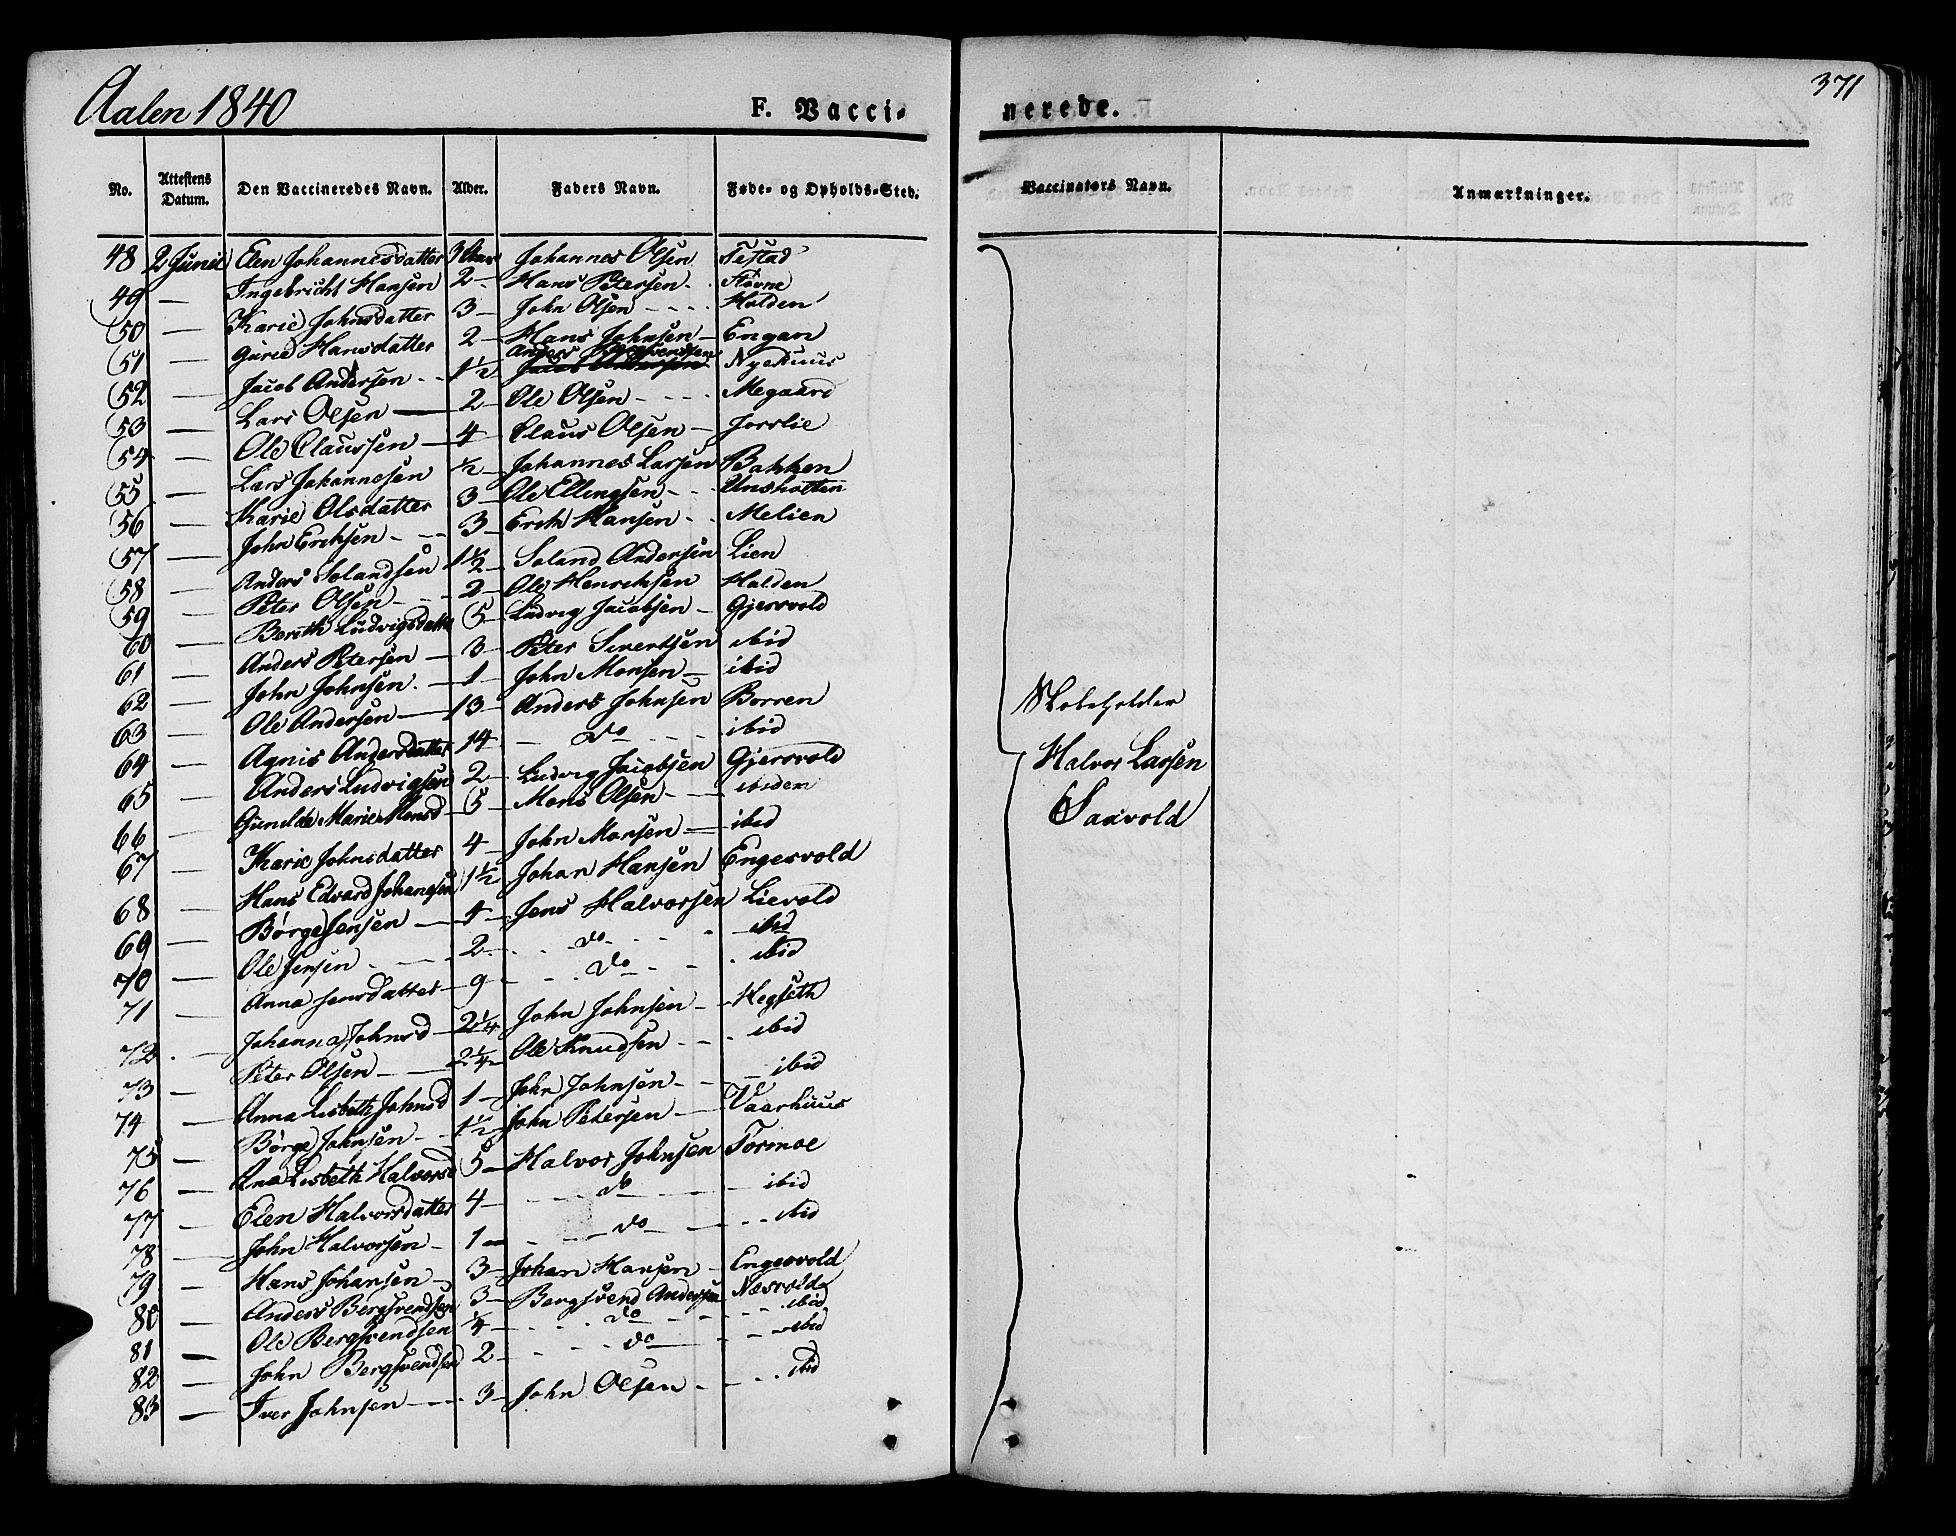 Aalen 1840
F. Vacci- nerede.
371
No. Attestens Datum. Den Vaccineredes Navn. Alder. Faders Navn. Føde- og Opholds-Sted. Vaccinators Navn. Anmærkninger.
48 2 Junii Elen Johannesdatter 3 Aar Johannes Olsen
49 — Ingebricht Hansen 2 - Hans Petersen - Støvne
50 — Karie Johnsdatter 3 - John Olsen - - - Holden
51 — Gurie Hansdatter 2 - Hans Johnsen - Engan
52 — Jacob Andersen - - 1½ Anders Bergsvendsen Nyehuus
53 — Lars Olsen — 2 - Ole Olsen - - - Megaard
54 — Ole Claussen — 4 - Claus Olsen - Jorslie
55 — Lars Johannesen ½ - Johannes Larsen Bakken
56 — Karie Olsdatter 3 - Ole Ellingsen - - Unsholten
57 — John Erichsen - - 3 - Erich Hansen - - Melien
58 — Anders Solandsen 1½ - Soland Andersen Lien
59 — Peter Olsen - - - 2 - Ole Henrichsen Holden
60 — Berith Ludvigsdatter 5 - Ludvig Jacobsen - Gjersvold
61 — Anders Petersen — 3 - Peter Sivertsen ibid
62 — John Johnsen - — 1 - John Monsen — ibid
63 — Ole Andersen — 13 - Anders Johnsen Borren
64 — Agnis Andersdatter 14 - — do - - - ibid
65 — Anders Ludvigsen 2 - Ludvig Jacobsen Gjersvold
66 — Gunilde Marie Monsd 5 - Mons Olsen - - - ibidem
67 — Karie Johnsdatter 4 - John Monsen — ibid
68 — Hans Edvard Johansen 1½ Johan Hansen Engesvold
69 — Børge Jensen — 4 - Jens Halvorsen Lievold
70 — Ole Jensen - - - 2 - - do - - - ibid
71 — Anna Jensdatter - 9 - - do - - - ibid
72 - — Johanna Johnsd - 2¼ John Johnsen - - Hegseth
73 — Peter Olsen - — 2¼ Ole Knudsen - - - ibid
74 — Anna Lisbeth Johnsd 1 - John Johnsen - - - ibid
75 — Børge Johnsen - - 1½ John Petersen — Vaarhuus
76 — Ana Lisbeth Halvorsd 5 - Halvor Johnsen Tormoe
77 — Elen Halvorsdatter 4 - - - - do — ibid
78 — John Halvorsen - 1 - - - do — - - - ibid
79 — Hans Johansen - 3 - Johan Hansen - Engesvold
80 — Anders Bergsvendsen 3 - Bergsvend Andersen Næsvold
81 — Ole Bergsvendsen ¼ - - - - do - - - - ibid
82 — John Bergsvendsen 2 - - - - do — - - ibid
83 — Iver Johnsen - - - 3 - John Olsen - - - - ibid
Halvor Larsen
Saxvold